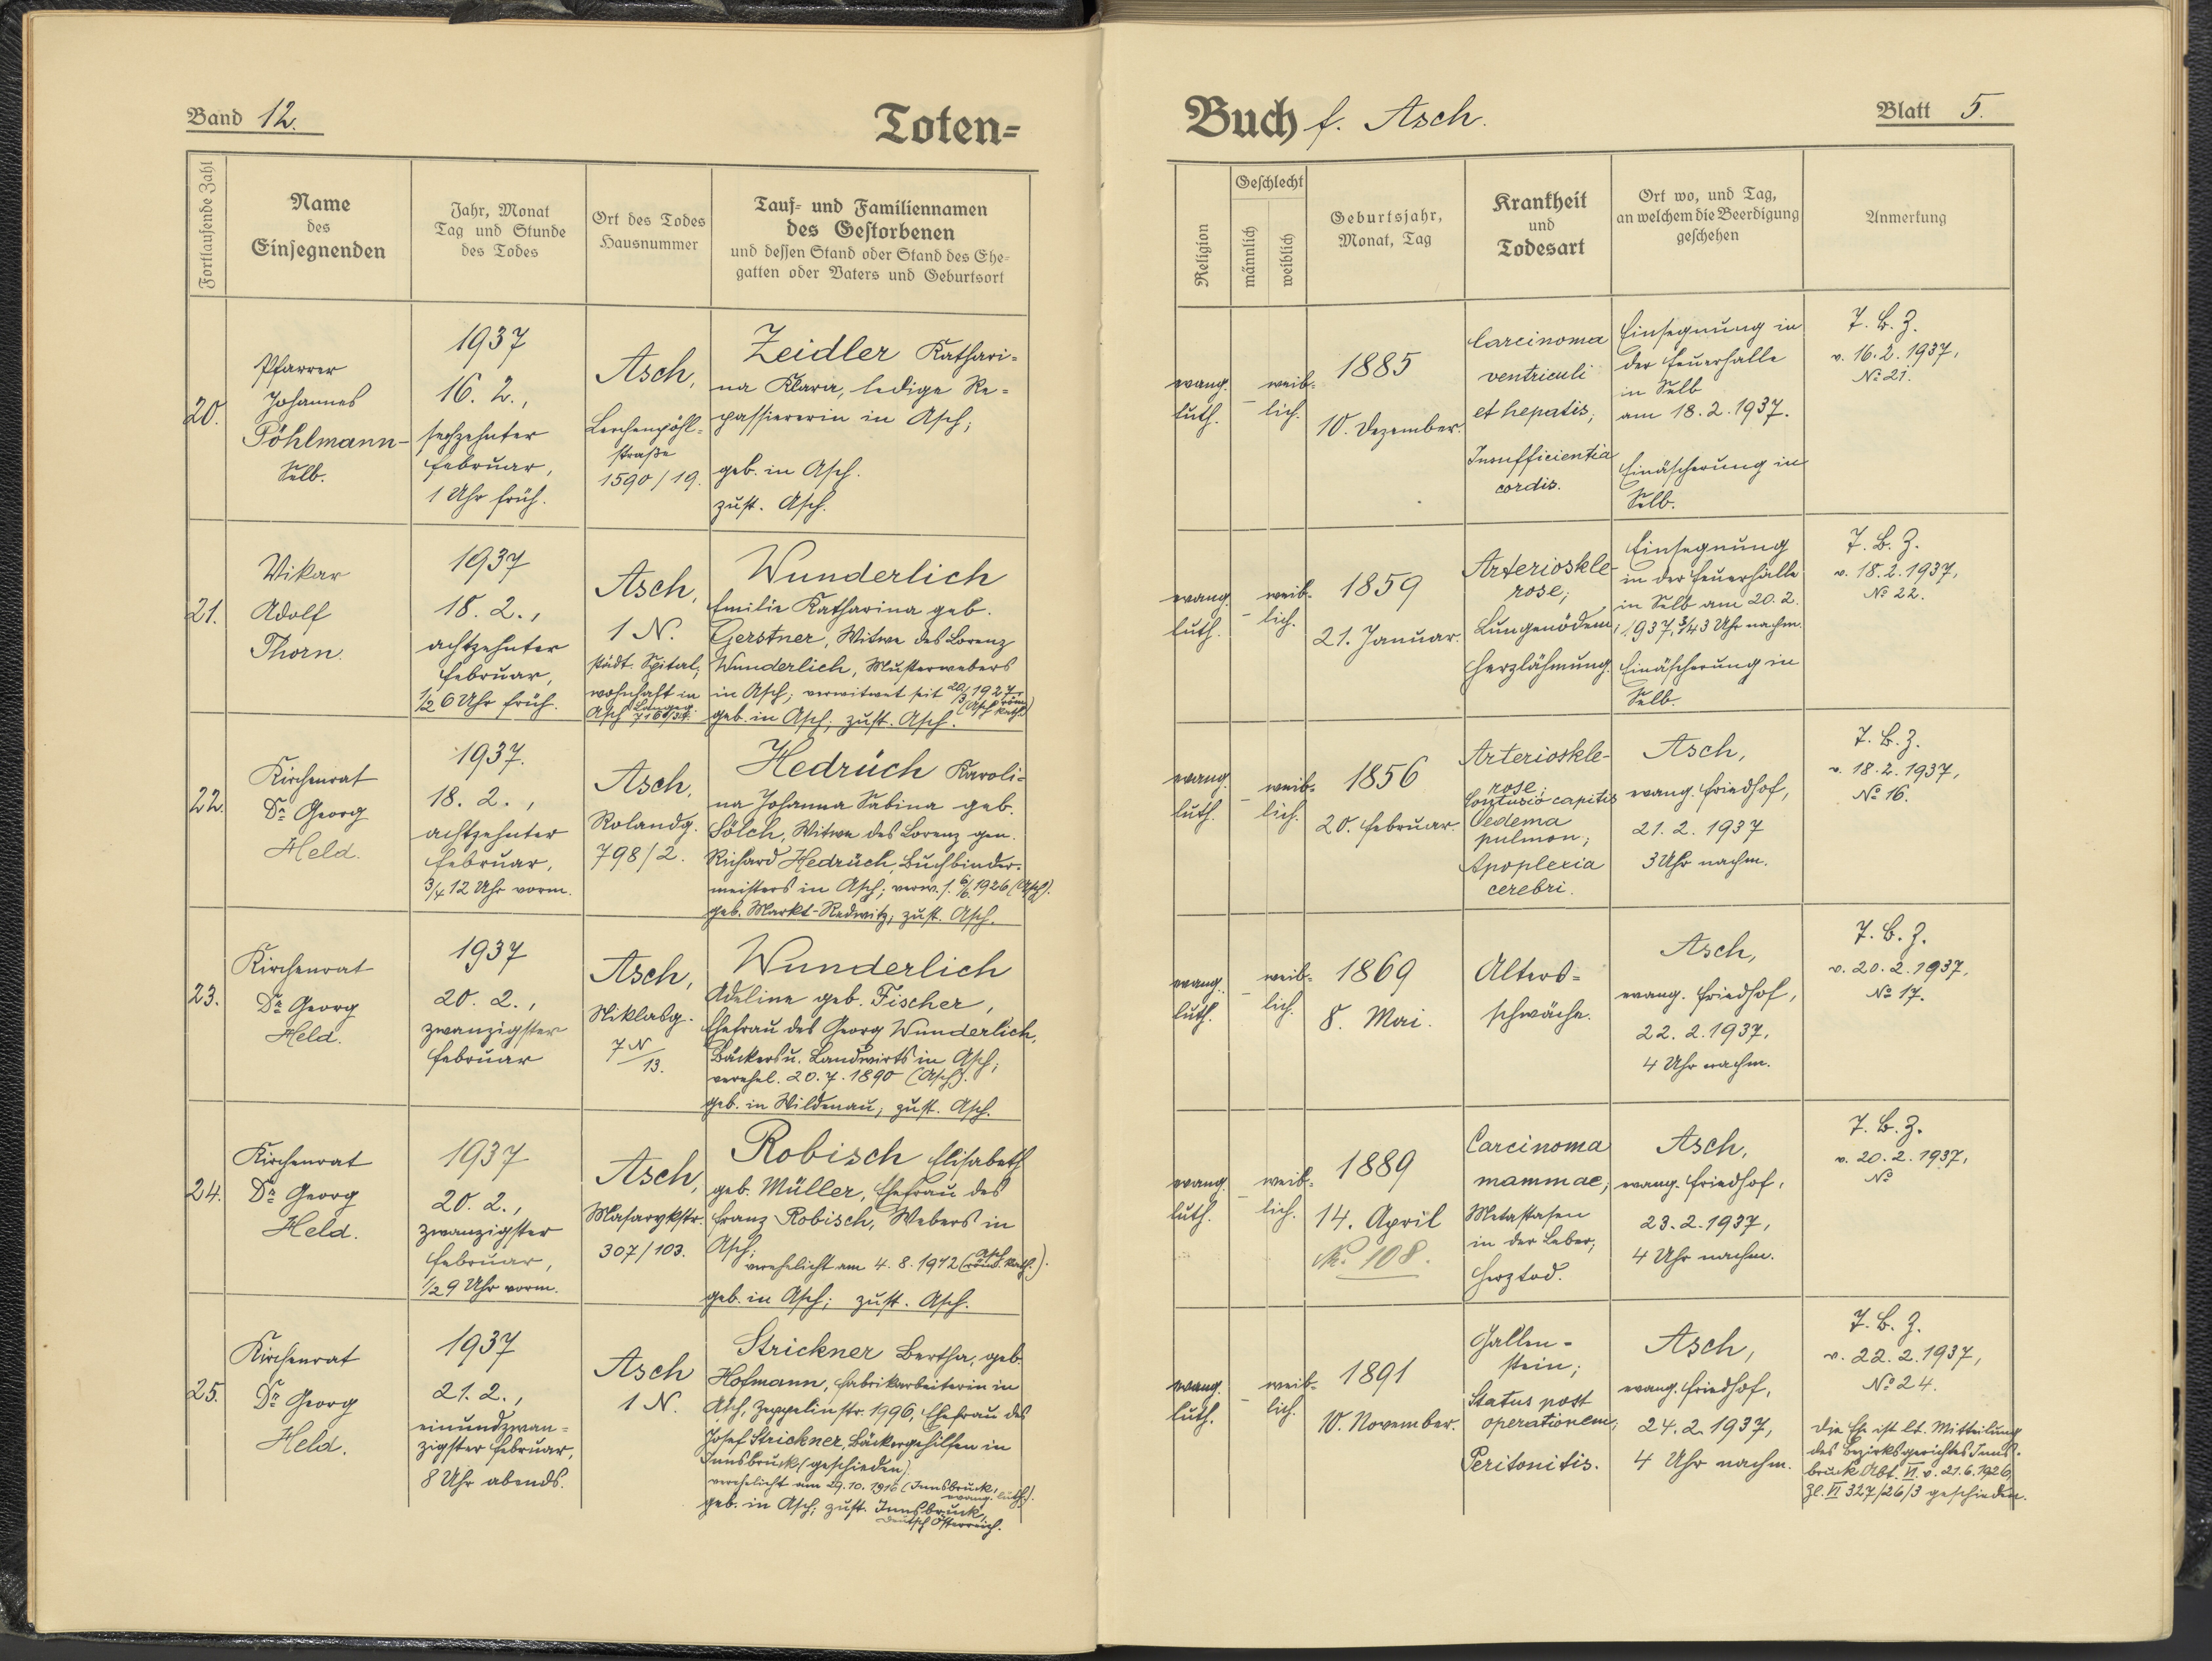 Band 12.
Toten=
Fortlaufende Zahl
Name
des
Einsegnenden
Jahr, Monat
Tag und Stunde
des Todes
Ort des Todes
Hausnummer
Tauf= und Familiennamen
des Gestorbenen
und dessen Stand oder Stand des Ehe=
gatten oder Vaters und Geburtsort
20.
Pfarrer
Johannes
Pöhlmann-
Selb.
1937
16. 2.,
sechzehnter
Februar,
1 Uhr früh.
Asch,
Lerchenpöhl=
straße
1590/19.
Zeidler Kathari=
na Klara, ledige Re=
passiererin in Asch;
geb. in Asch.
zust. Asch.
21.
Vikar
Adolf
Thorn.
1937
18. 2.,
achtzehnter
Februar,
1/2 6 Uhr früh.
Asch,
1 N.
städt. Spital,
wohnhaft in
Asch
Wunderlich
Emilie Katharina geb.
Gerstner, Witwe des Lorenz
Wunderlich, Musterwebers
in Asch; verwitwet seit 20/3 1927
(Asch röm. kath.)
geb. in Asch; zust. Asch.
22.
Kirchenrat
Dr. Georg
Held.
1937.
18. 2.,
achtzehnter
Februar,
3/4 12 Uhr vorm.
Asch,
Rolandg.
798/2.
Hedrüch Karoli=
na Johanna Sabina geb.
Sölch, Witwe des Lorenz gen.
Richard Hedrüch, Buchbinder=
meisters in Asch; verw. s. 6/6 1926 (Asch).
geb. Markt-Redwitz; zust. Asch.
23.
Kirchenrat
Dr. Georg
Held.
1937
20. 2.,
zwanzigster
Februar
Asch,
Niklasg.
7 N/13.
Wunderlich
Adeline geb. Fischer,
Ehefrau des Georg Wunderlich,
Bäckers u. Landwirts in Asch;
verehel. 20. 7. 1890 (Asch).
geb. in Wildenau; zust. Asch.
24.
Kirchenrat
Dr. Georg
Held.
1937
20. 2.,
zwanzigster
Februar,
1/2 9 Uhr vorm.
Asch,
Masarykstr.
307/103.
Robisch Elisabeth
geb. Müller, Ehefrau des
Franz Robisch, Webers in
Asch;
verehelicht am 4. 8. 1912 (Asch röm. kath.).
geb. in Asch; zust. Asch.
25.
Kirchenrat
Dr. Georg
Held.
1937
21. 2.,
einundzwan=
zigster Februar,
8 Uhr abends.
Asch
1 N.
Strickner Bertha, geb.
Hofmann, Fabrikarbeiterin in
Asch, Zeppelinstr. 1996, Ehefrau des
Josef Strickner, Bäckergehilfen in
Innsbruck (geschieden).
verehelicht am 29. 10. 1916 (Innsbruck,
evang. luth.).
geb. in Asch; zust. Innsbruck,
Deutsch Österreich.
Buch f. Asch.
Blatt 5.
Religion
Geschlecht
männlich
weiblich
Geburtsjahr,
Monat, Tag
Krankheit
und
Todesart
Ort wo, und Tag,
an welchem die Beerdigung
geschehen
Anmerkung
evang.
luth.
-
weib=
lich.
1885
10. Dezember.
Carcinoma
ventriculi
et hepatis;
Insufficientia
cordis.
Einsegnung in
der Feuerhalle
in Selb
am 18. 2. 1937.
Einäscherung in
Selb.
T. B. Z.
v. 16. 2. 1937,
No 21.
evang.
luth.
-
weib=
lich.
1859
21. Januar.
Arterioskle-
rose;
Lungenödem;
Herzlähmung.
Einsegnung
in der Feuerhalle
in Selb am 20. 2.
1937, 3/4 3 Uhr nachm.
Einäscherung in
Selb.
T. B. Z.
v. 18. 2. 1937,
No 22.
evang.
luth.
-
weib=
lich.
1856
20. Februar.
Arterioskle-
rose;
Contusio capitis
Oedema
pulmon;
Apoplexia
cerebri.
Asch,
evang. Friedhof,
21. 2. 1937
3 Uhr nachm.
T. B. Z.
v. 18. 2. 1937,
No 16.
evang.
luth.
-
weib=
lich.
1869
8. Mai.
Alters=
schwäche.
Asch,
evang. Friedhof,
22. 2. 1937,
4 Uhr nachm.
T. B. Z.
v. 20. 2. 1937,
No 17.
evang.
luth.
-
weib=
lich.
1889
14. April
No. 108.
Carcinoma
mammae;
Metastasen
in der Leber;
Herztod.
Asch,
evang. Friedhof,
23. 2. 1937,
4 Uhr nachm.
T. B. Z.
v. 20. 2. 1937,
No
evang.
luth.
-
weib=
lich.
1891
10. November.
Gallen=
stein;
Status post
operationem;
Peritonitis.
Asch,
evang. Friedhof,
24. 2. 1937,
4 Uhr nachm.
T. B. Z.
v. 22. 2. 1937,
No 24.
Die Ehe ist lt. Mitteilung
des Bezirksgerichtes Inns=
bruck Abt. VI v. 21. 6. 1926,
Zl. VI 327/26/3 geschieden.